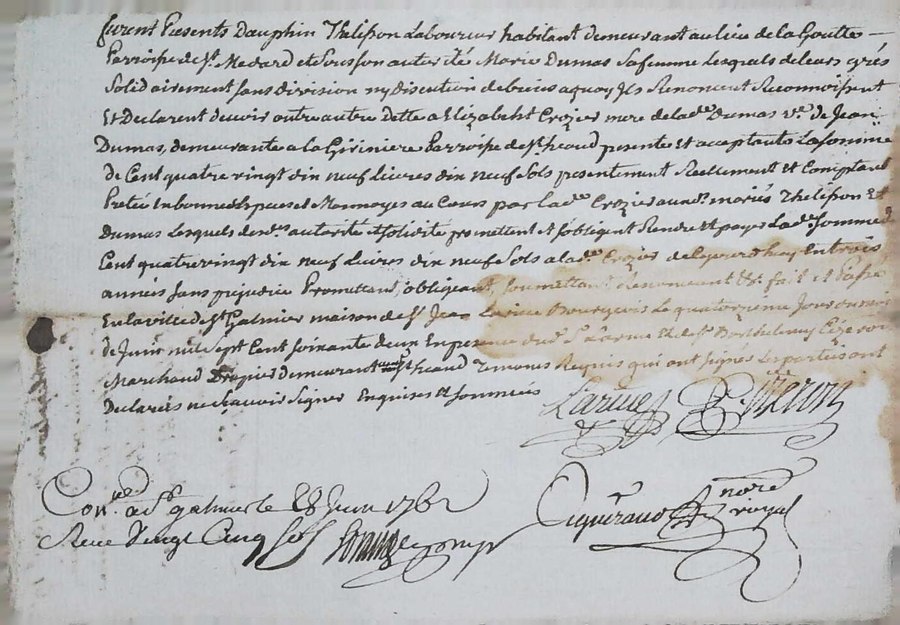 furent Presents Dauphin Thelison Laboureur habitant demeurant au lieu de la Goutte
Parroisse de St. Medard et sous son autorité Marie Dumas sa femme lesquels de leurs grés
Solidairement sans division ny discution de biens a quoy ils Renoncent Reconnoissent
Et Declarent devoir outre autre Dette a Elizabeht Crozier mere de lade. Dumas ve. de Jean
Dumas, demeurante a la Parroisse de St. heaud presente et acceptante La somme
de Cent quatre vingt dix neuf Livres dix neuf Sols presentement Reellement et Comptant
Pretée En bonnes Espaces et Monnoyes au Cours par lade. Crozier auxds. mariés Thelison Et
Dumas Lesquels desds. autorité et solidité promettent et s'obligent Rendre et payer Lade. Somme de
Cent quatre vingt dix neuf Livres dix neuf Sols a lade. Crozier de Cejourdhuy En trois
années Sans prejudice Promettant, obligeant, soumettant, Renonceant &c fait et Passé
En la ville de St. Galmier maison de Sr. Jean Larue Bourgeois Le quatorzieme Jour du mois
de Juin mil Sept Cent soixante deux En presence dud. Sr. Larue Et de Sr. Barthelemy
Marchand Drapier demeurant St. heaud Temoins Requis qui ont signés Les parties ont
Declarés ne Scavoir Signer Enquises Et sommées
Larue
Con.lé a St. galmier le 28 Juin 1762
Reçu Vingt Cinq sols
nore. royal